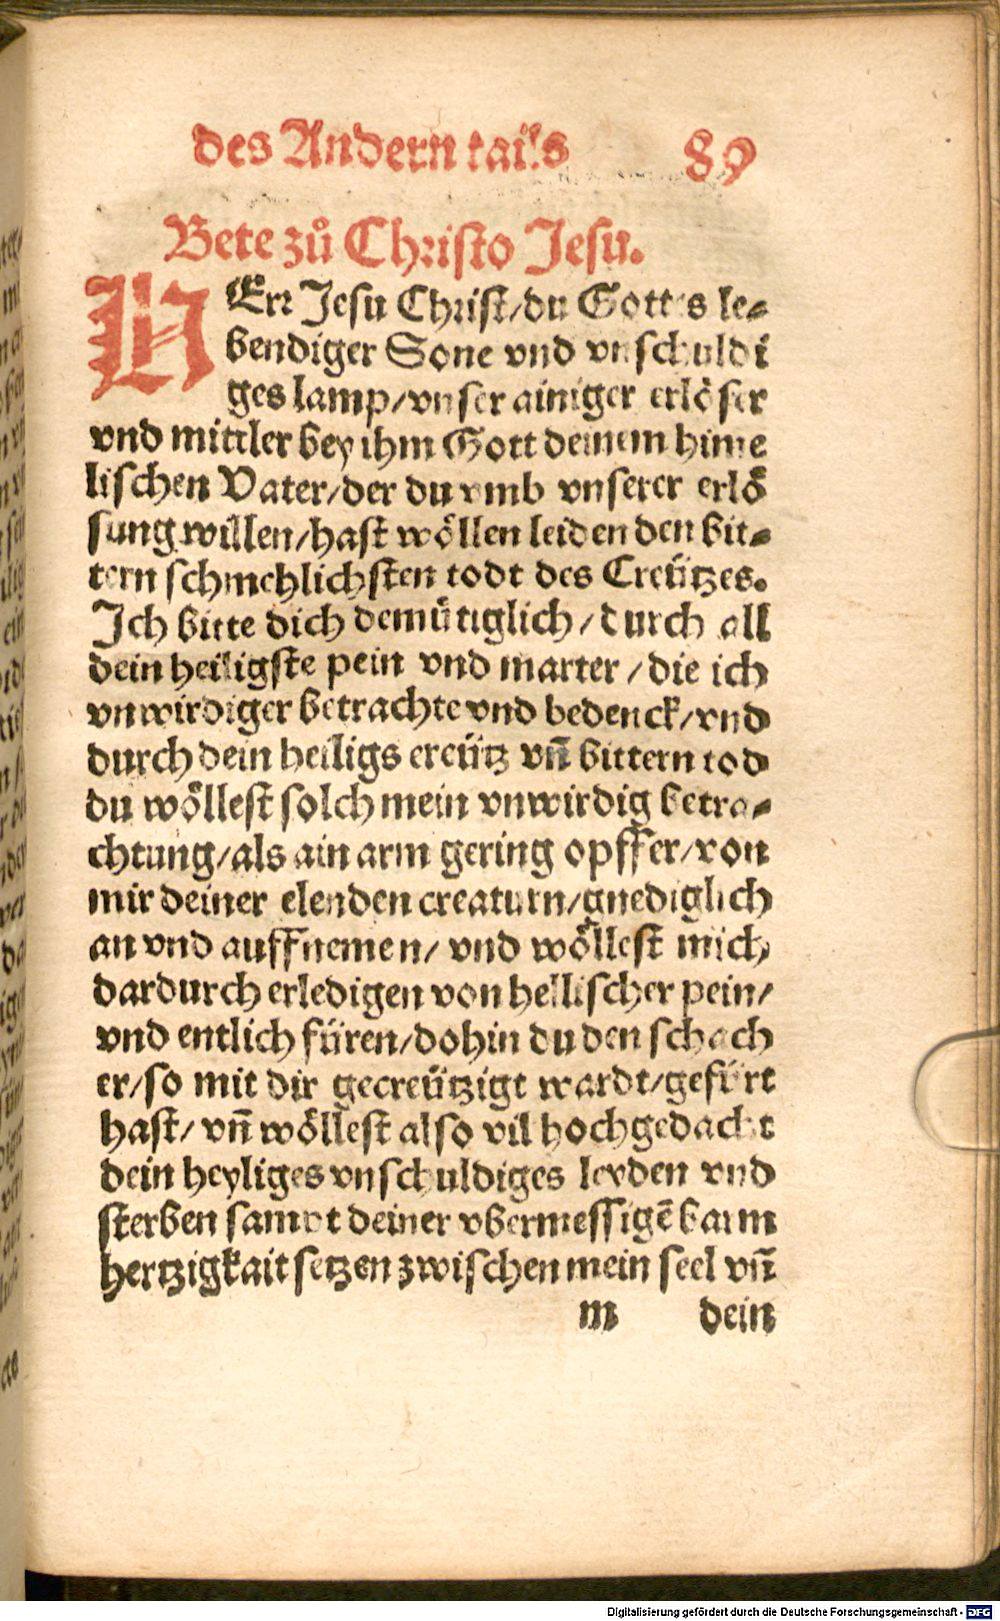 des Andern tails 89
Bete zů Christo Jesu.
HErr Jesu Christ/du Gottes le-
bendiger Sone vnd vnschuldi
ges lamp/vnser ainiger erlöser
vnd mittler bey ihm Gott deinem hime
lischen Vater/der du vmb vnserer erlö
sung willen/hast wöllen leiden den bit-
tern schmehlichsten todt des Creützes.
Jch bitte dich demütiglich/durch all
dein heiligste pein vnd marter/die ich
vnwirdiger betrachte vnd bedenck/vnd
durch dein heiligs creütz vñ bittern tod
du wöllest solch mein vnwirdig betra-
chtung/als ain arm gering opffer/von
mir deiner elenden creaturn/gnediglich
an vnd auffnemen/vnd wöllest mich
dardurch erledigen von hellischer pein/
vnd entlich füren/dohin du den schach
er/so mit dir gecreützigt wardt/gefürt
hast/vñ wöllest also vil hochgedacht
dein heyliges vnschuldiges leyden vnd
sterben sampt deiner vbermessigē barm
hertzigkait setzen zwischen mein seel vñ
m dein
Digitalisierung gefördert durch die Deutsche Forschungsgemeinschaft - DFG